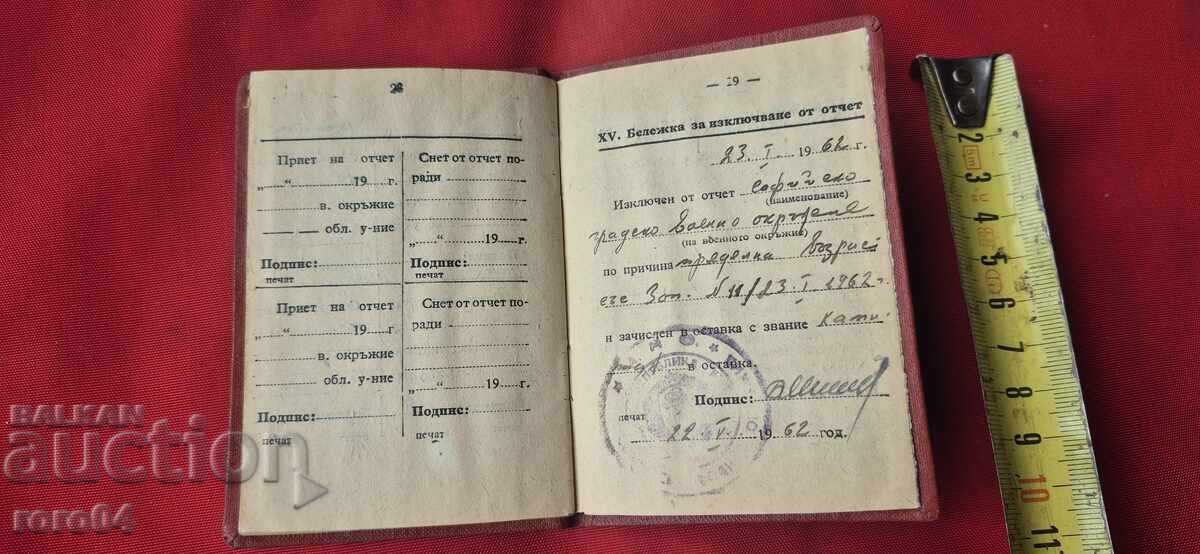 28
Приет на отчет
„ “ 19 г.
в. окръжие
обл. у-ние
Подпис:
печат
Снет от отчет по-
ради
„ “ 19 г.
Подпис:
печат
Приет на отчет
“ 19 г.
в. окръжие
обл. у-ние
Подпис:
печат
Снет от отчет по-
ради
„ “ 19 г.
Подпис:
печат
— 29 —
XV. Бележка за изключване от отчет
23. I. 1962 г.
Изключен от отчет Софийско
(наименование)
градско Военно окръжие
(на военното окръжие)
по причина пределна възраст
Зап. № 11/23. I. 1962 г.
и зачислен в оставка с звание Капи-
в оставка.
Подпис:
печат
22 V 1962 год.
BALKAN
auction
roro64
2 3 4 5 6 7 8 9 10 11